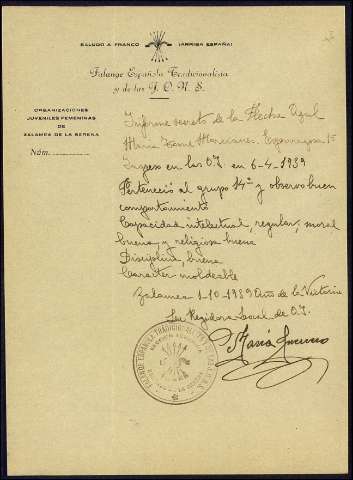 SALUDO A FRANCO (ARRIBA ESPAÑA)
Falange Española Tradicionalista
y de las J. O. N. S.
ORGANIZACIONES
JUVENILES FEMENINAS
DE
ZALAMEA DE LA SERENA
Núm.
Informe secreto de la Flecha Azul
María
Ingreso en las OJ. en 6-4-1939
Perteneció al grupo 14º y observó buen
comportamiento
Capacidad intelectual, regular, moral
buena, y religiosa buena
Disciplina, buena
Carácter moldeable
Zalamea 1-10-1939 Año de la Victoria
La Regidora Local de O.J.
María Guerrero
FALANGE ESPAÑOLA TRADICIONALISTA Y DE LAS J.O.N.S.